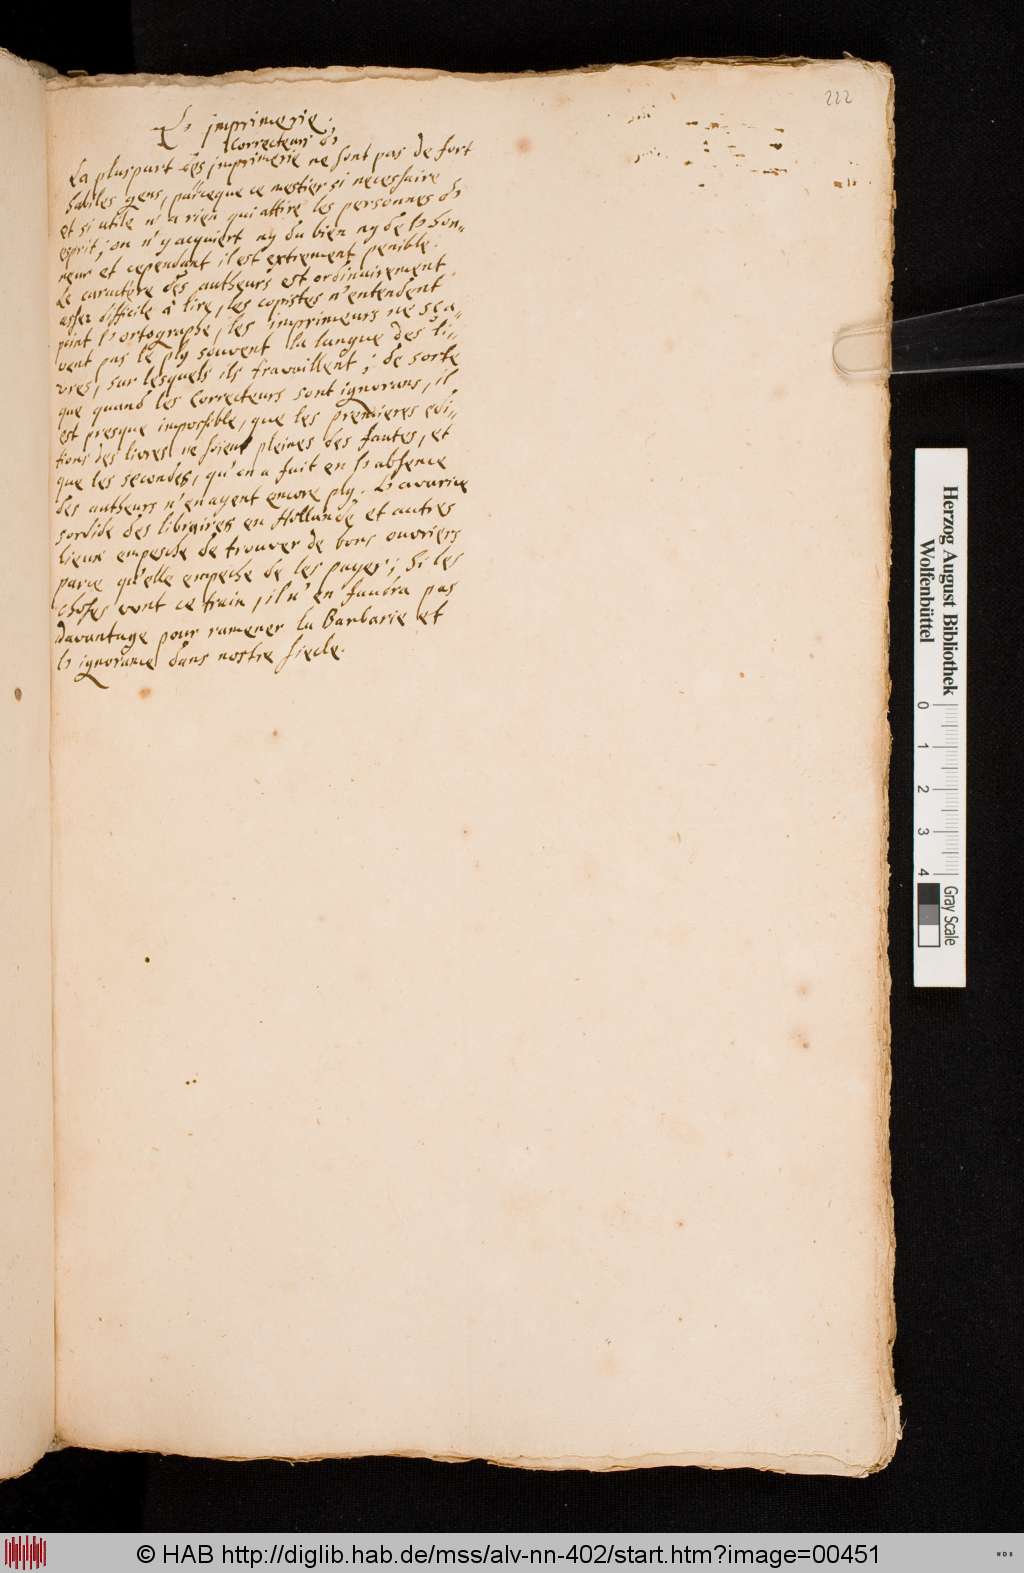 222
L' imprimerie.
correcteurs d'
La pluspart des imprimerie ne sont pas de fort
habiles gens, parceque ce mestier si necessaire
et si utile n' a rien qui attire les personnes d'
esprit; on n' y acquiert ny du bien ny de l' hon-
neur et cependant il est extrement penible.
Le caractere des autheurs est ordinairement
assez difficile à lire, les copistes n' entendent
point l' ortographe, les imprimeurs ne sca-
vent pas le plq souvent la langue des li-
vres, sur lesquels ils travaillent; de sorte
que quand les Correcteurs sont ignorans, il
est presque impossible, que les premieres edi-
tions des livres ne soient pleines des fautes, et
que les secondes, qu' on a fait en l' absence
des autheurs n' en ayent encore plq. L' avarice
sordide des libraires en Hollande et autres
lieux empesche de trouver de bons ouvriers
parce qu' elle empeche de les payer; si les
choses vont ce train, il n' en faudra pas
davantage pour ramener la Barbarie et
l' ignorance dans nostre siecle.
Herzog August Bibliothek
Wolfenbüttel
0 1 2 3 4
Gray Scale
© HAB http://diglib.hab.de/mss/alv-nn-402/start.htm?image=00451